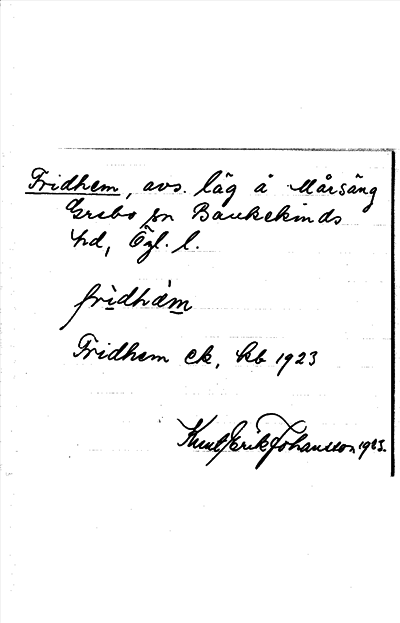 Fridhem, avs. läg å Mårsäng
Grebo sn Bankekinds
hd, Ögl. l.
fridhäm
Fridhem ek, kb 1923
Knut Erik Johansson 1983.